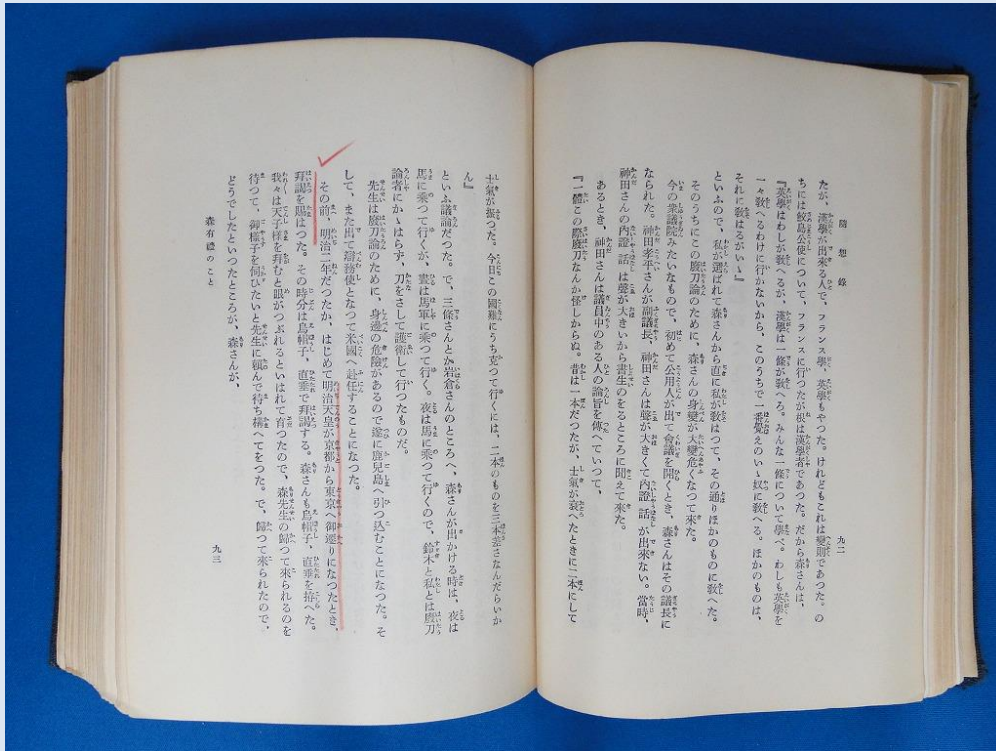 隨想錄
九二
たが、漢學が出來る人で、フランス學、英學もやつた。けれどもこれは變則であつた。の
ちには鮫島公使について、フランスに行つたが根は漢學者であつた。だから森さんは、
『英學はわしが敎へるが、漢學は一條が敎へろ。みんな一條について學べ。わしも英學を
一々敎へるわけに行かないから、このうちで一番覺えのいゝ奴に敎へる。ほかのものは、
それに敎はるがいゝ』
といふので、私が選ばれて森さんから直に私が敎はつて、その通りほかのものに敎へた。
そのうちにこの廢刀論のために、森さんの身邊が大變危くなつて來た。
今の衆議院みたいなもので、初めて公用人が出て會議を開くとき、森さんはその議長に
なられた。神田孝平さんが副議長、神田さんは聲が大きくて內證話が出來ない。當時、
神田さんの內證話は聲が大きいから書生のをるところに聞えて來た。
あるとき、神田さんは議員中のある人の論旨を傳へていつて、
『一體この際廢刀なんか怪しからぬ。昔は一本だつたが、士氣が衰へたときに二本にして
士氣が振つた。今日この國難にうち克つて行くには、二本のものを三本差さなんだらいか
ん』
といふ議論だつた。で、三條さんとか岩倉さんのところへ、森さんが出かける時は、夜は
馬に乘つて行くが、晝は馬車に乘つて行く。夜は馬に乘つて行くので、鈴木と私とは廢刀
論者にかゝはらず、刀をさして護衞して行つたものだ。
先生は廢刀論のために、身邊の危險があるので遂に鹿兒島へ引つ込むことになつた。そ
して、また出て辯務使となつて米國へ赴任することになつた。
その前、明治二年だつたか、はじめて明治天皇が京都から東京へ御遷りになつたとき、
拜謁を賜はつた。その時分は烏帽子、直垂で拜謁する。森さんも烏帽子、直垂を拵へた。
我々は天子樣を拜むと眼がつぶれるといはれて育つたので、森先生の歸つて來られるのを
待つて、御樣子を伺ひたいと先生に賴んで待ち構へてをつた。で、歸つて來られたので、
どうでしたといつたところが、森さんが、
森有禮のこと
九三